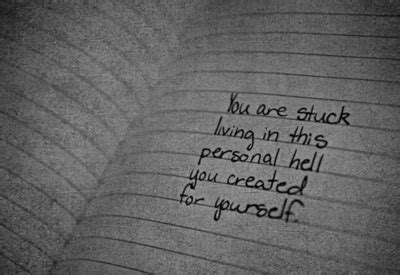 You are stuck
living in this
personal hell
you created
for yourself.